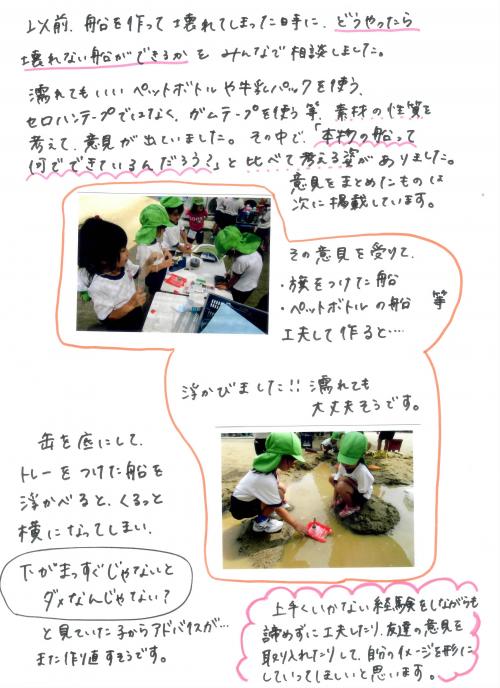 以前、船を作って壊れてしまった時に、どうやったら
壊れない船ができるかをみんなで相談しました。
濡れてもいいペットボトルや牛乳パックを使う、
セロハンテープではなく、ガムテープを使う等、素材の性質を
考えて、意見が出ていました。その中で、「本物の船って
何でできているんだろう?」と比べて考える姿がありました。
意見をまとめたものは
次に掲載しています。
その意見を受けて、
・旗をつけた船
・ペットボトルの船 等
工夫して作ると…
浮かびました!!濡れても
大丈夫そうです。
缶を底にして、
トレーをつけた船を
浮かべると、くるっと
横になってしまい、
下がまっすぐじゃないと
ダメなんじゃない?
と見ていた子からアドバイスが…
また作り直すそうです。
上手くいかない経験をしながらも
諦めずに工夫したり、友達の意見を
取り入れたりして、自分のイメージを形に
していってほしいと思います。